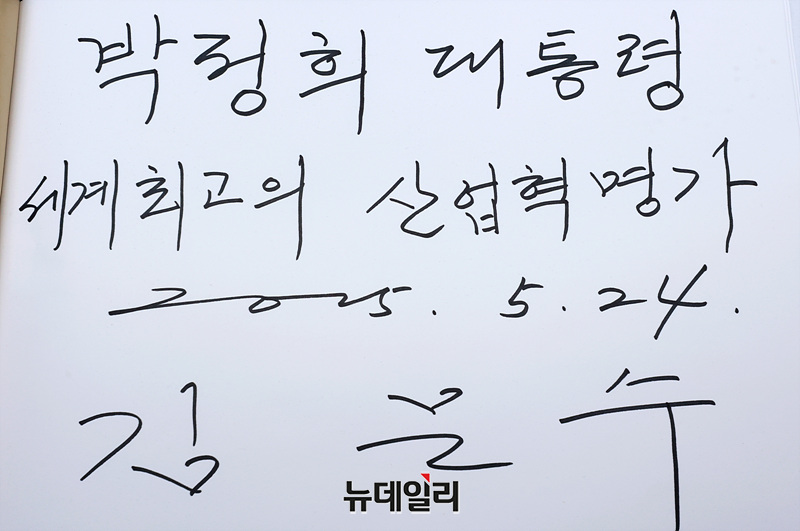 박정희 대통령
세계최고의 산업혁명가
2025. 5. 24.
김문수
뉴데일리